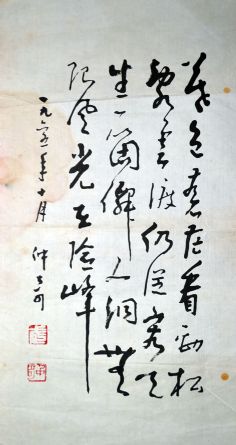 暮色苍茫看劲松
乱云飞渡仍从容天
生一个仙人洞无
限风光在险峰
一九六五年十月